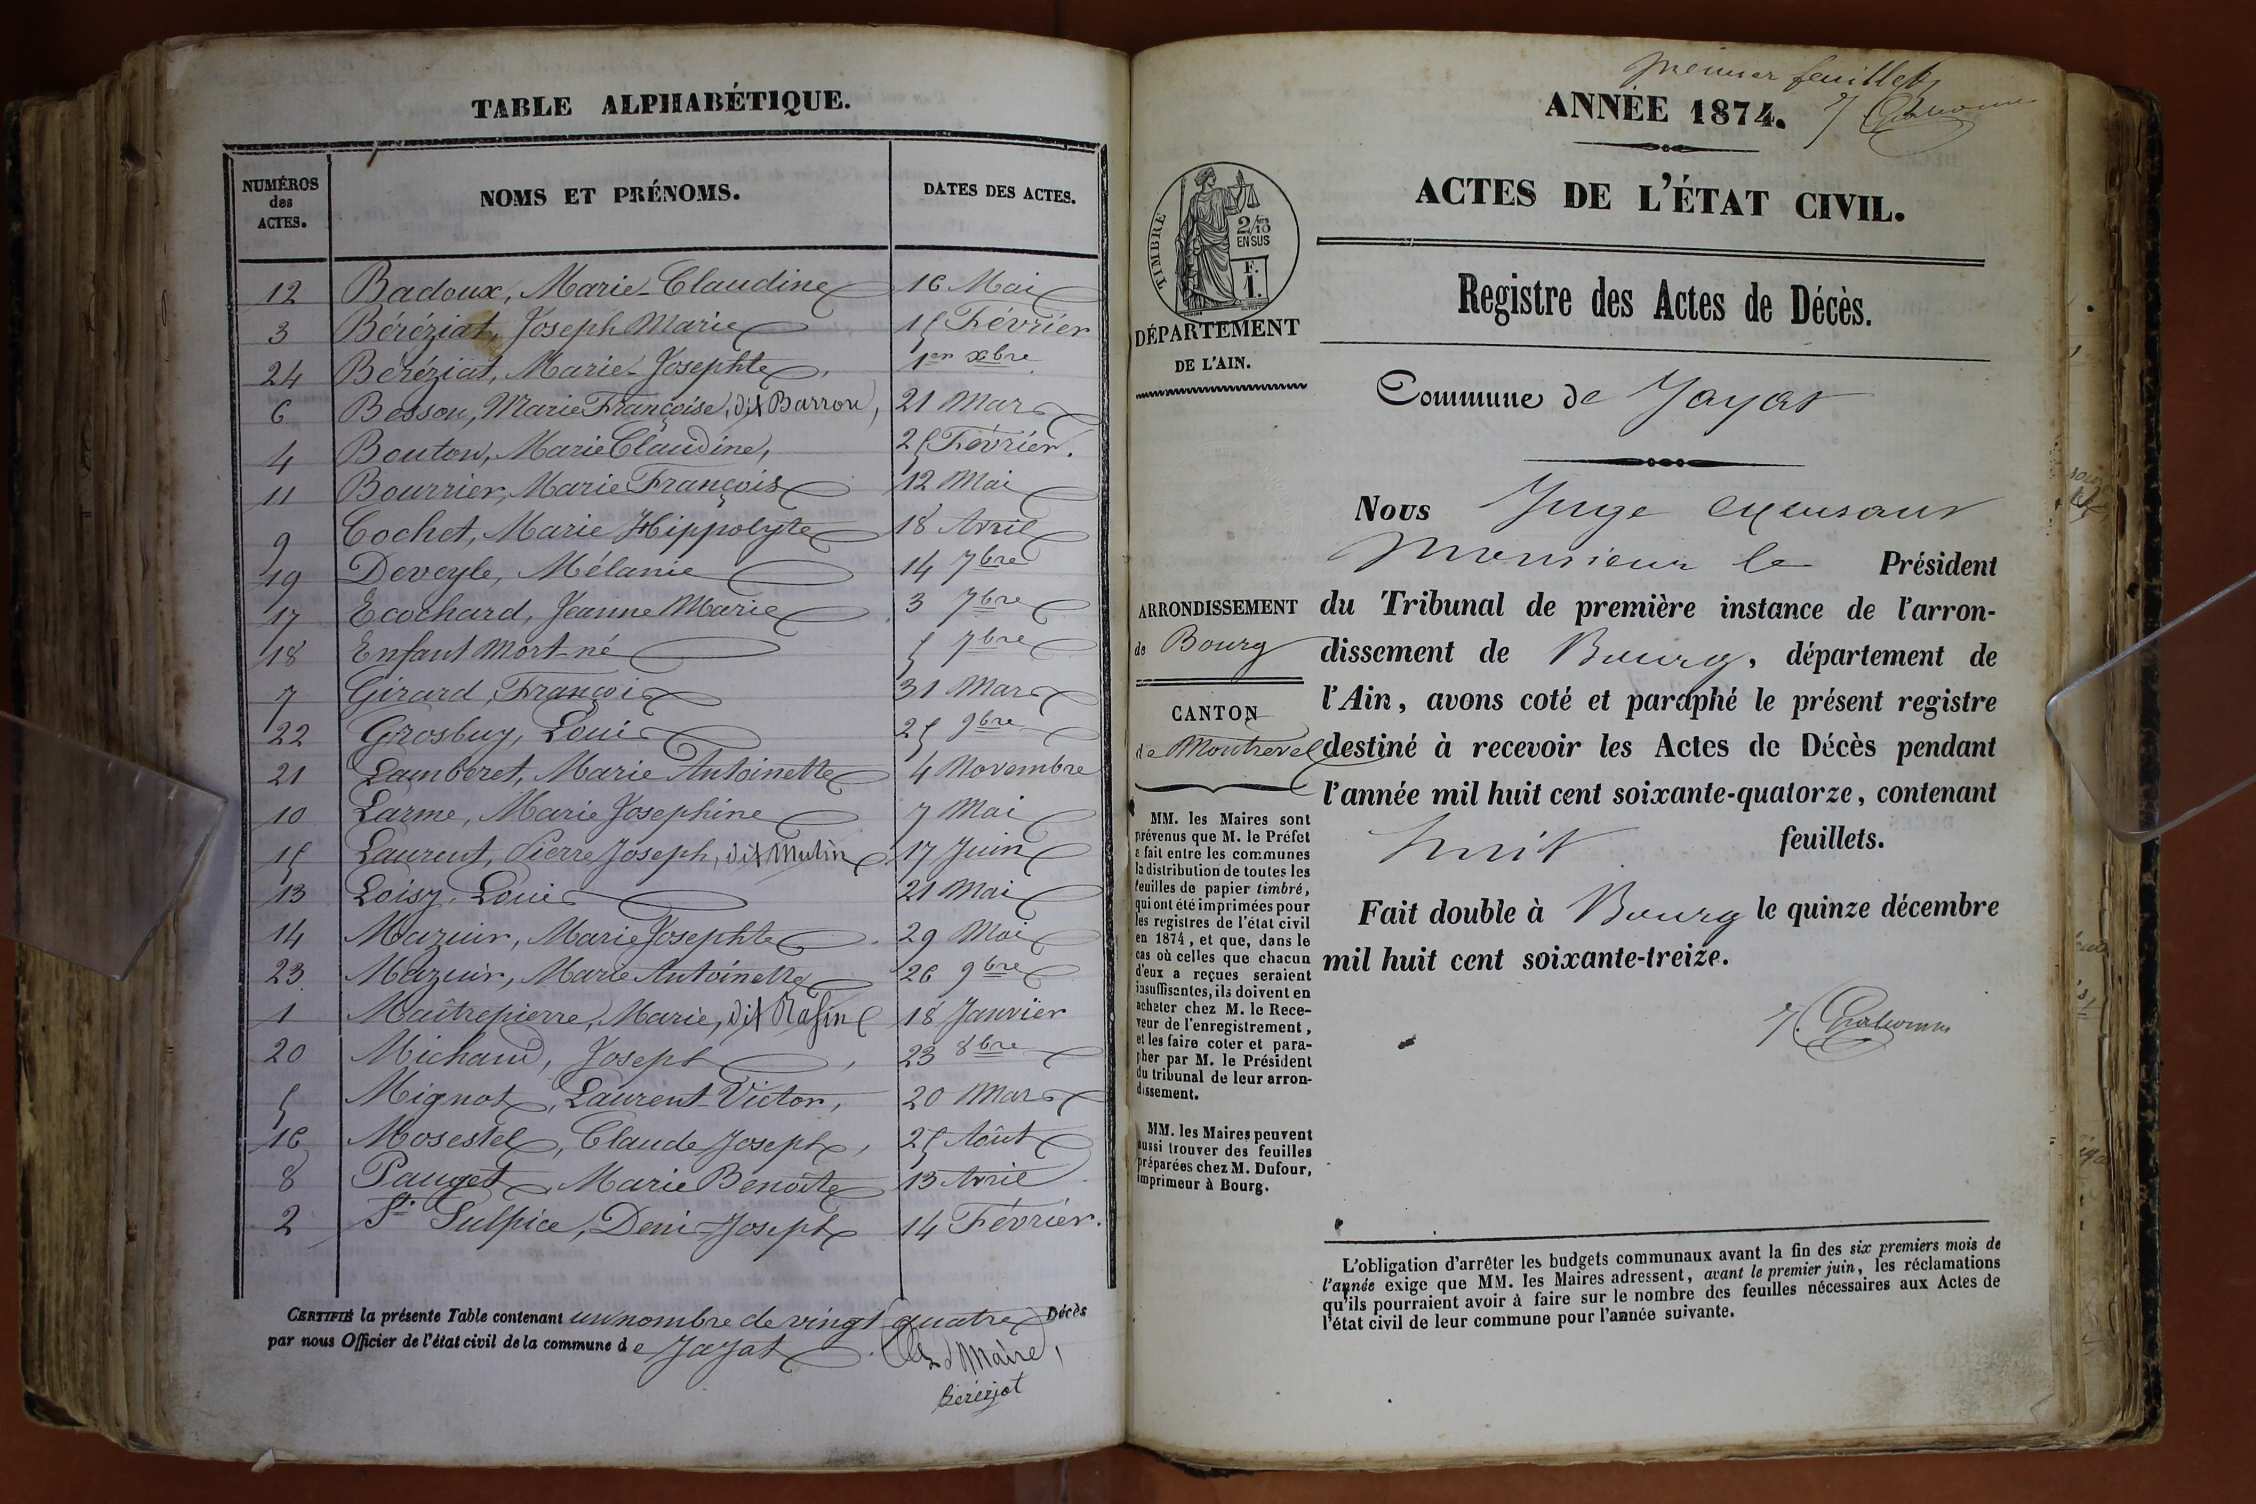 TABLE ALPHABÉTIQUE.
NUMÉROS des ACTES. NOMS ET PRÉNOMS. DATES DES ACTES.
12 Badoux, Marie-Claudine 16 Mai
3 Béréziat, Joseph Marie 15 Février
24 Béréziat, Marie-Josephte, 1er xbre
6 Besson, Marie Françoise, dit Barron, 21 Mars
4 Bouton, Marie Claudine, 25 Février.
11 Bourrier, Marie François 12 Mai
9 Cochet, Marie Hippolyte 18 Avril
19 Deveyle, Mélanie 14 7bre
17 Ecochard, Jeanne Marie 3 7bre
18 Enfant Mort-né 5 7bre
7 Girard, François 31 Mars
22 Grosbuy, Louis 25 9bre
21 Lamberet, Marie Antoinette 4 Novembre
10 Larme, Marie Josephine 7 Mai
15 Laurent, Pierre Joseph, dit Mutin 17 Juin
13 Loisy, Louis 21 Mai
14 Mazuir, Marie Josephte 29 Mai
23 Mazuir, Marie Antoinette 26 9bre
1 Maîtrepierre, Marie, dit Rafin 18 Janvier
20 Michaud, Joseph, 23 8bre
5 Mignot, Laurent-Victor, 20 Mars
16 Mosestel, Claude Joseph, 25 Aôut
8 Pauget, Marie Benoîte 13 Avril
2 St. Sulpice, Denis-Joseph 14 Février.
CERTIFIÉ la présente Table contenant un nombre de vingt quatre Décès
par nous Officier de l'état civil de la commune de Jayat
Le Maire,
Béréziat
premier feuillet
ANNÉE 1874.
ACTES DE L'ÉTAT CIVIL.
TIMBRE
2/10
EN SUS
F.
1.
DÉPARTEMENT
DE L'AIN.
Registre des Actes de Décès.
Commune de Jayat
ARRONDISSEMENT
de Bourg
CANTON
de Montrevel
Nous Juge excusant
Monsieur le Président
du Tribunal de première instance de l'arron-
dissement de Bourg, département de
l'Ain, avons coté et paraphé le présent registre
destiné à recevoir les Actes de Décès pendant
l'année mil huit cent soixante-quatorze, contenant
huit feuillets.
Fait double à Bourg le quinze décembre
mil huit cent soixante-treize.
MM. les Maires sont
prévenus que M. le Préfet
a fait entre les communes
la distribution de toutes les
feuilles de papier timbré,
qui ont été imprimées pour
les registres de l'état civil
en 1874, et que, dans le
cas où celles que chacun
d'eux a reçues seraient
insuffisantes, ils doivent en
acheter chez M. le Rece-
veur de l'enregistrement,
et les faire coter et para-
pher par M. le Président
du tribunal de leur arron-
dissement.
MM. les Maires peuvent
aussi trouver des feuilles
préparées chez M. Dufour,
imprimeur à Bourg.
L'obligation d'arrêter les budgets communaux avant la fin des six premiers mois de
l'année exige que MM. les Maires adressent, avant le premier juin, les réclamations
qu'ils pourraient avoir à faire sur le nombre des feuilles nécessaires aux Actes de
l'état civil de leur commune pour l'année suivante.